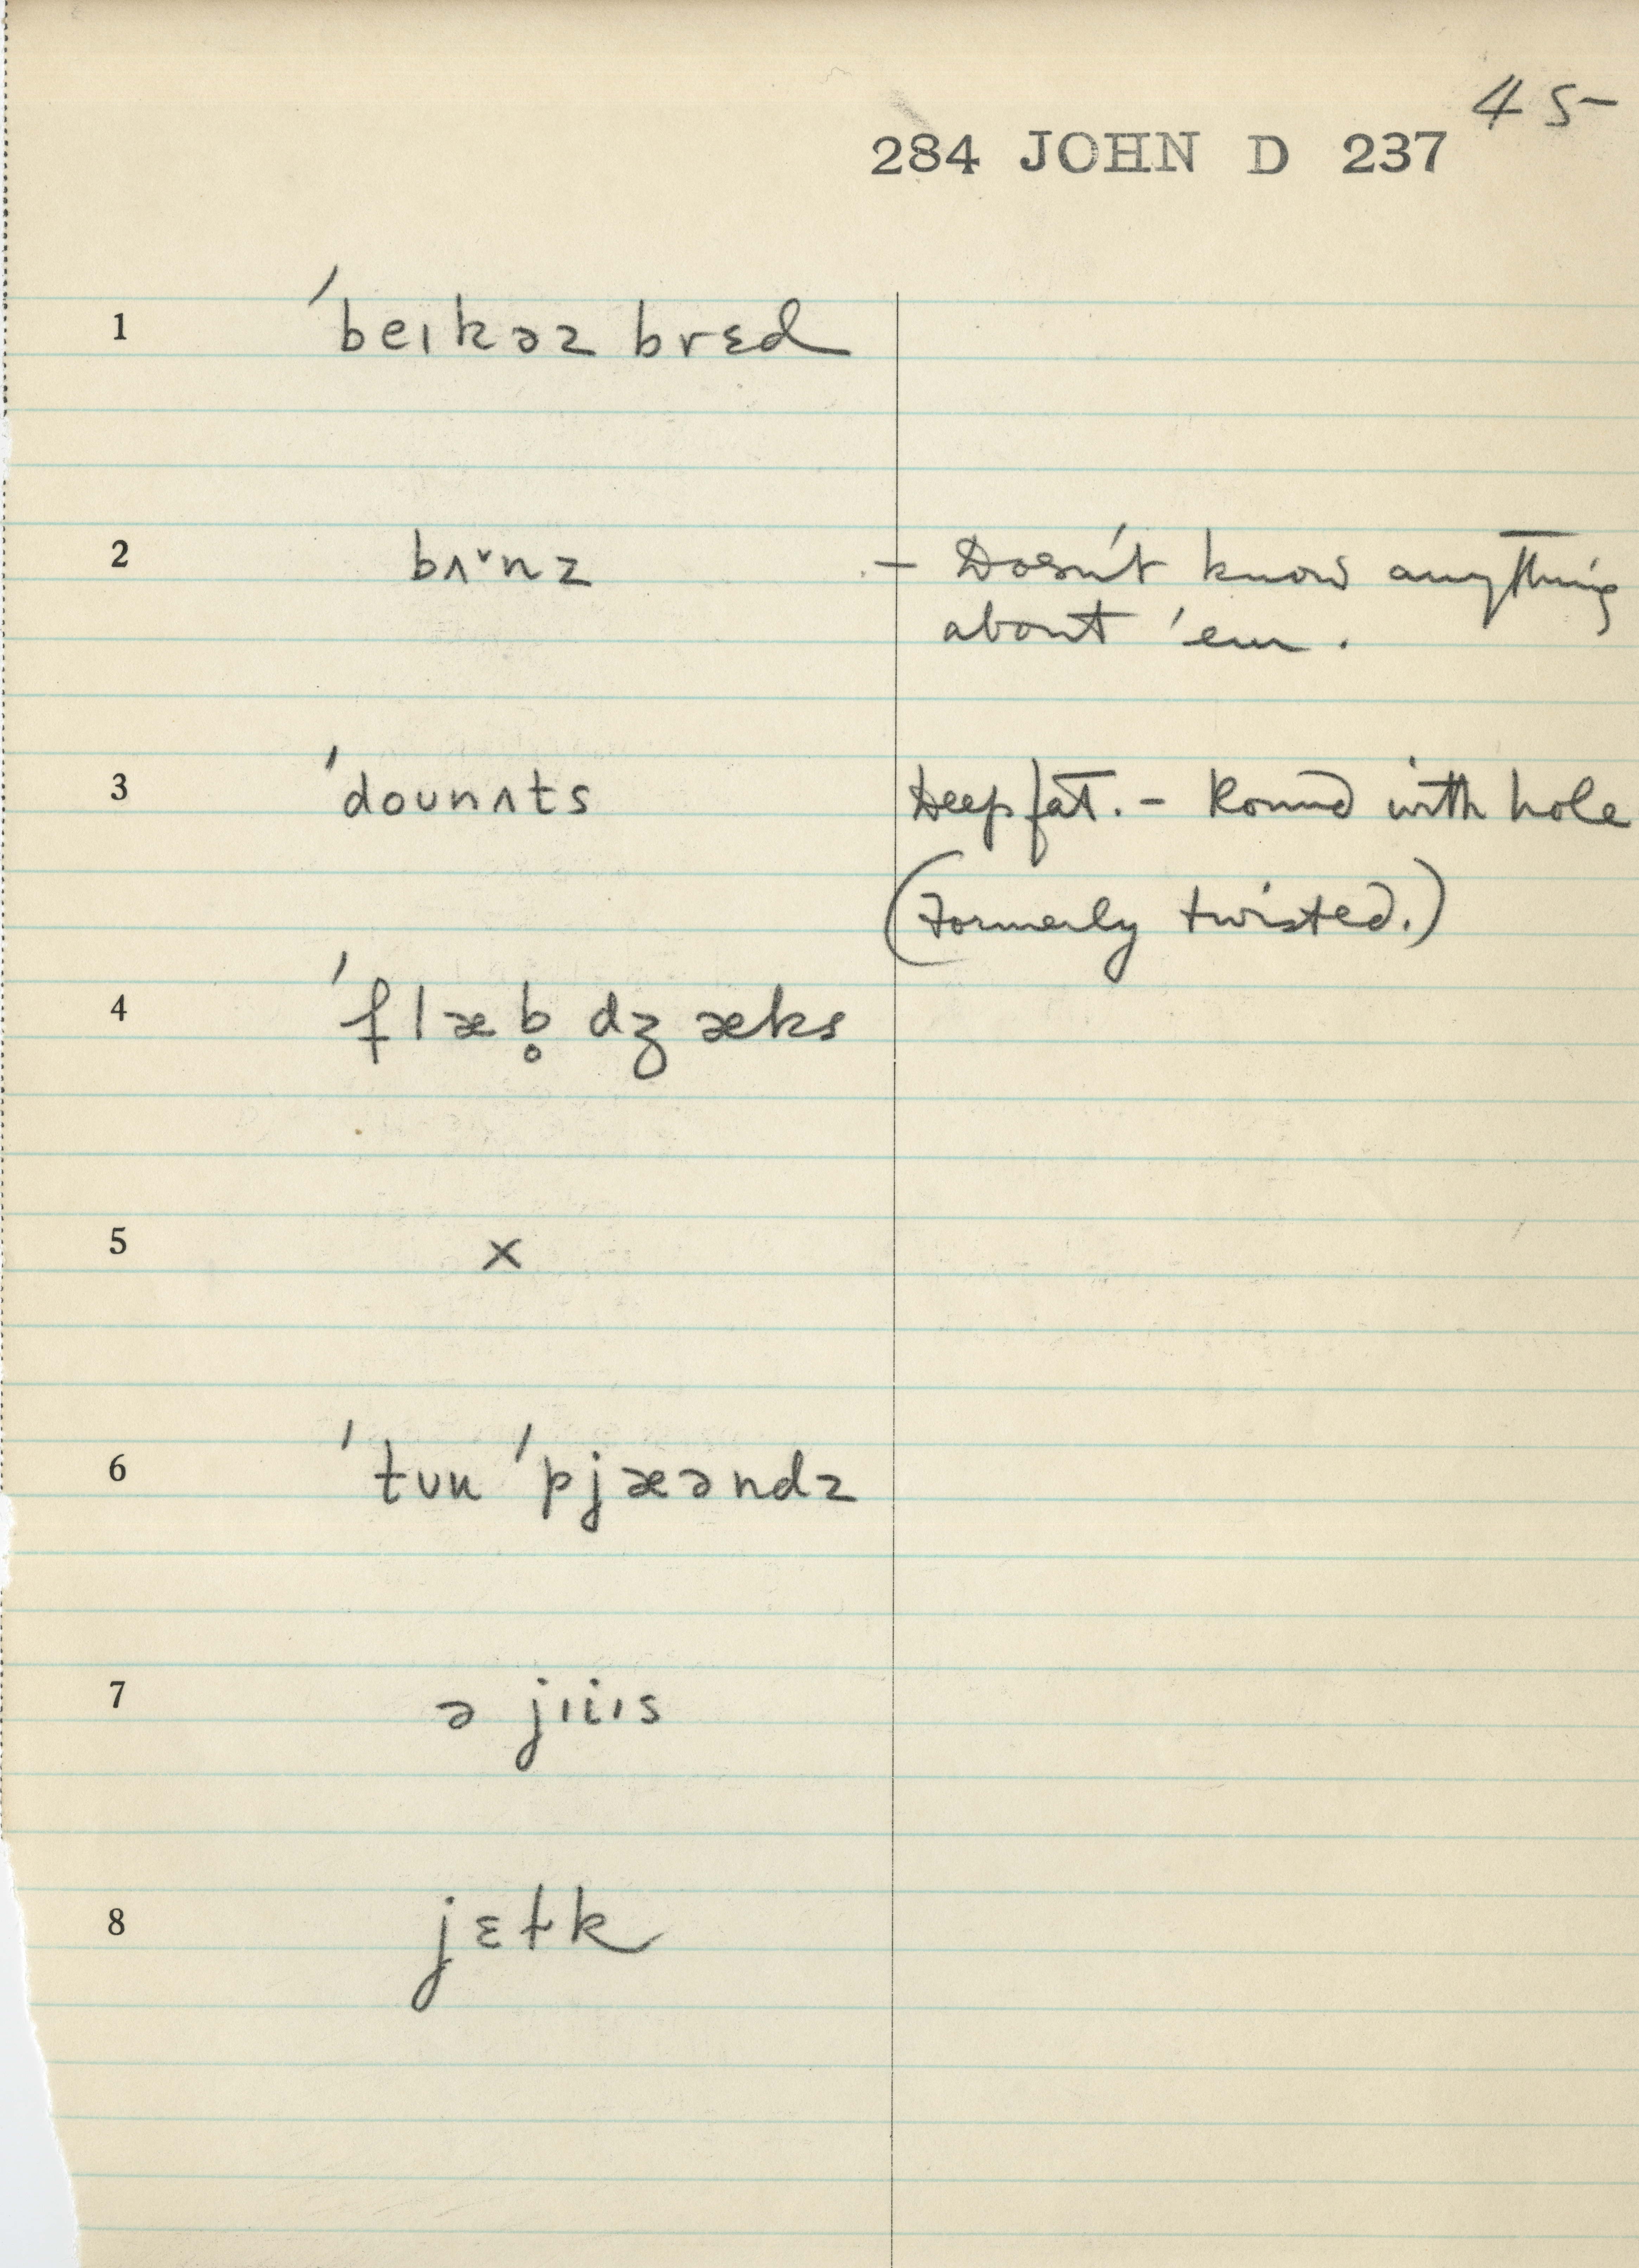 45
284 JOHN D 237
1 ˈbeɪkəz brɛd
2 bʌˇnz - Doesn't know anything
about 'em.
3 ˈdoʊnʌts Deep fat. - Round with hole
(Formerly twisted.)
4 ˈflæb̥ dʒæks
5 x
6 ˈtʊu ˈpjæəndz
7 ə jɪiɪs
8 jɛɫk